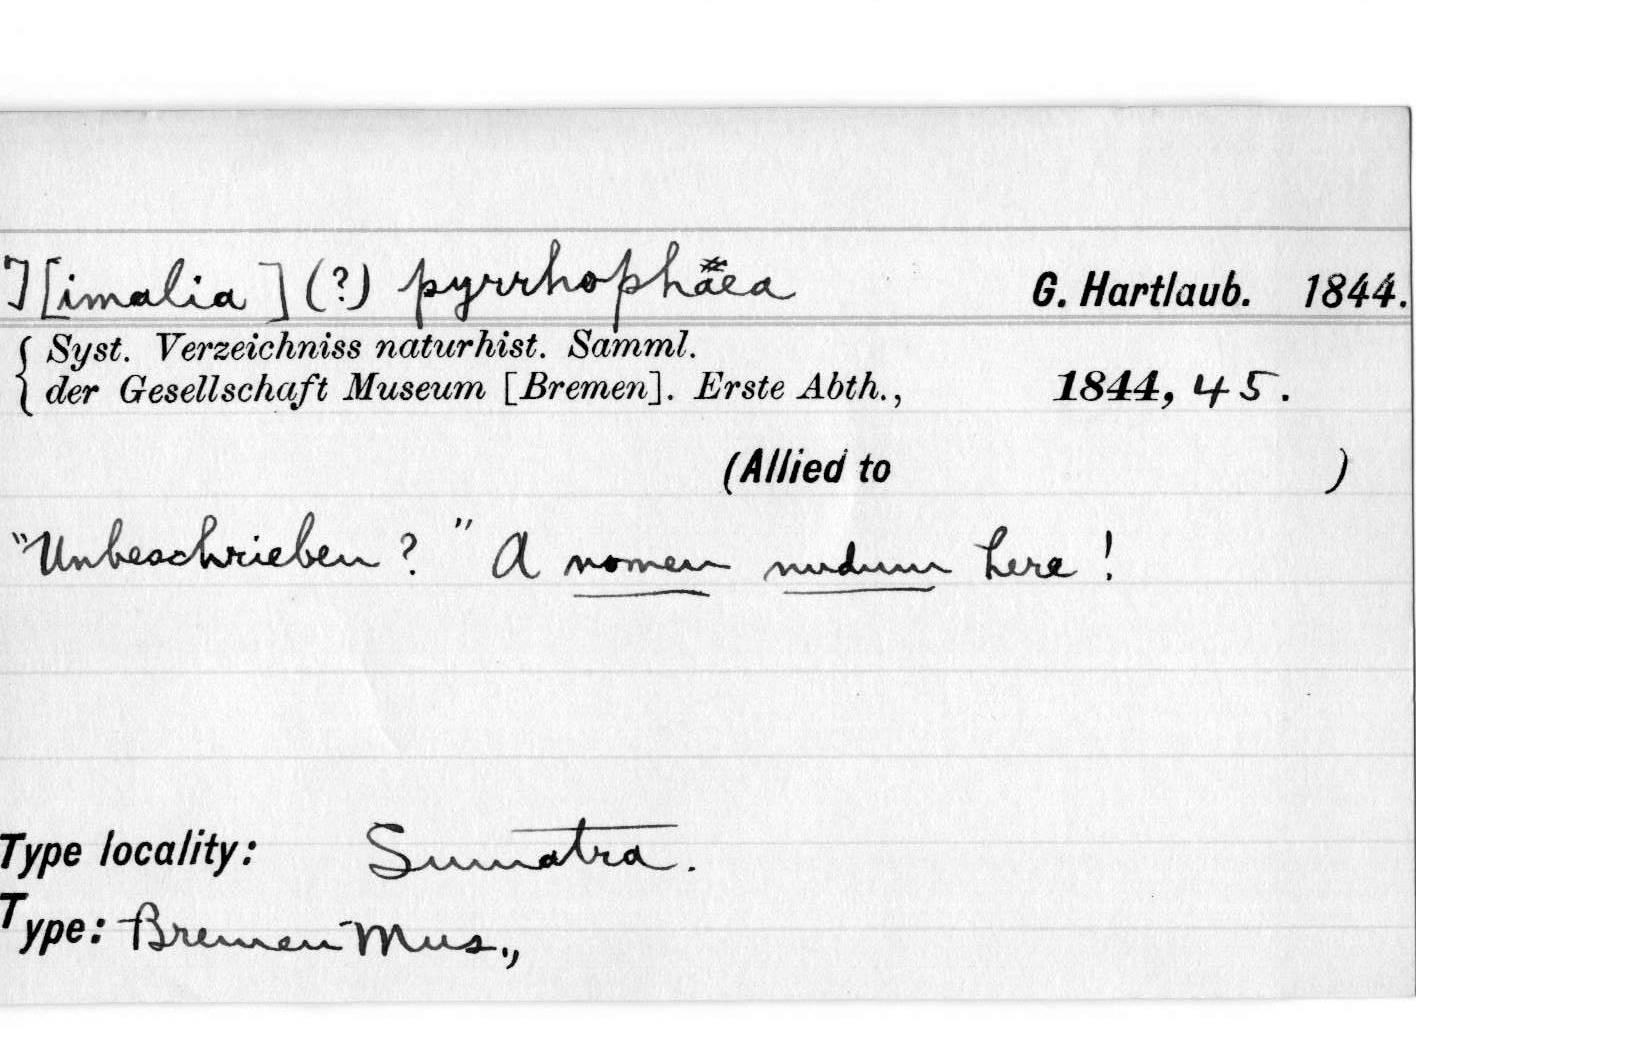 T[imalia] (?) pyrrhophæa G. Hartlaub. 1844.
Syst. Verzeichniss naturhist. Samml.
der Gesellschaft Museum [Bremen]. Erste Abth., 1844, 45.
(Allied to )
"Unbeschrieben?" A nomen nudum here!
Type locality: Sumatra.
Type: Bremen Mus.,